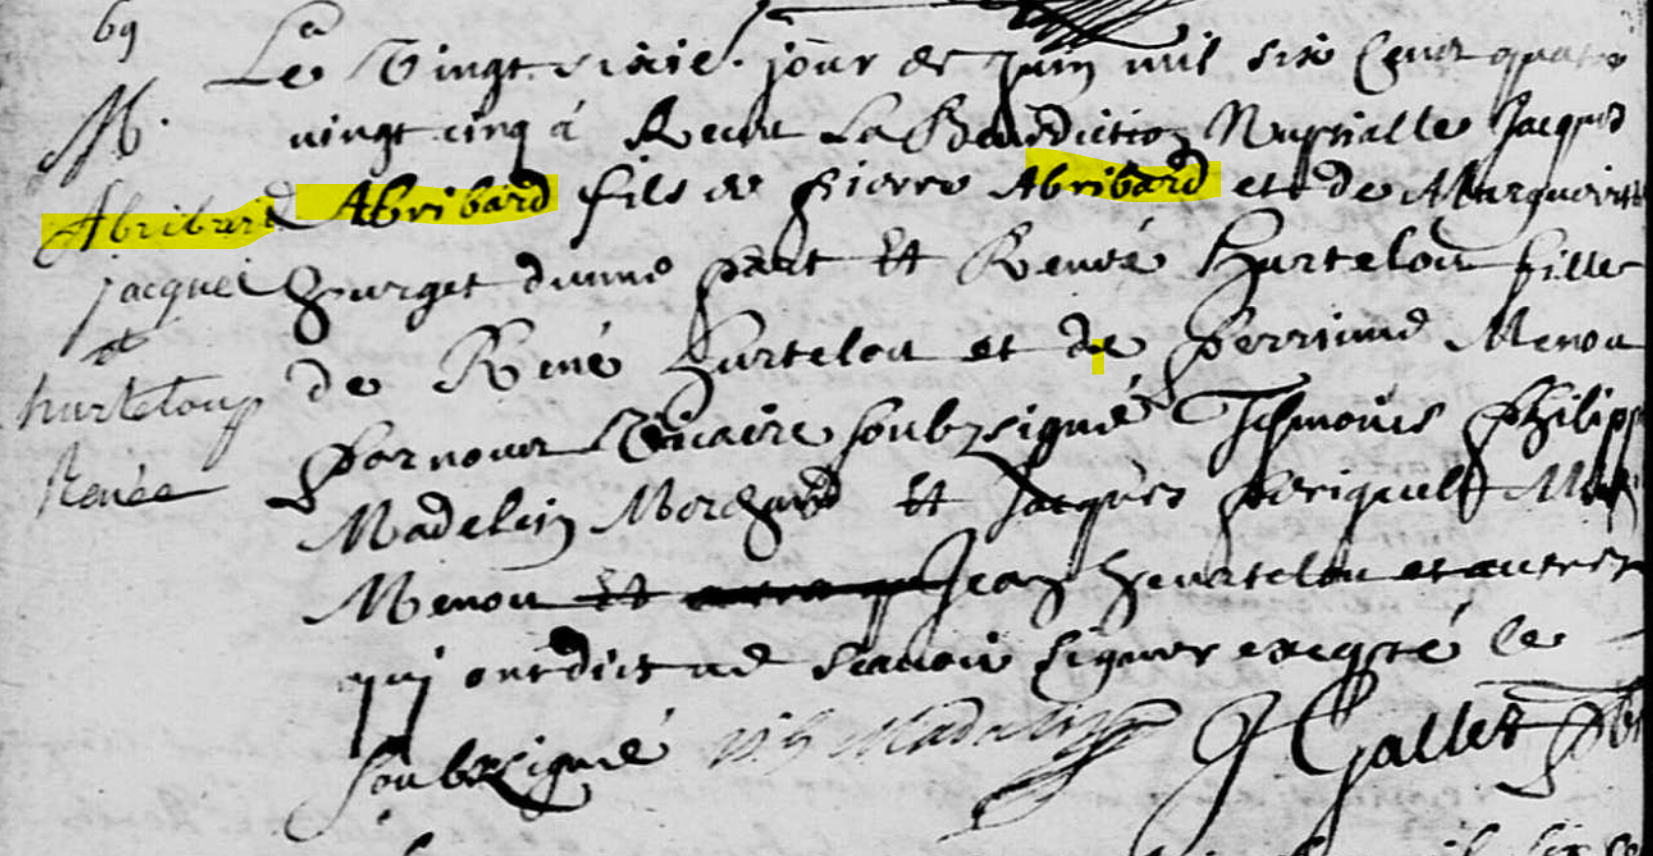 69
M.
Abribard
jacques
et
hurteloup
Renée
Le Vingt sixie. jour de Juin mil six Cent quatre
vingt cinq á Receu La Benediction Nuptialle Jacques
Abribard fils de pierre Abribard et de Margueritte
purget dunne part Et Renée Hurtelou fille
de René Hurtelou et de perrinne Menou
par nous Vicaire soubzsigné Tesmoins Philipp
Madelein Morchard Et Jacques periquelt
Menou Et Jean Heurtelou et autres
qui ont dict ne scavoir signer excepté le
soubzsigné Madelein J Gallet pbr